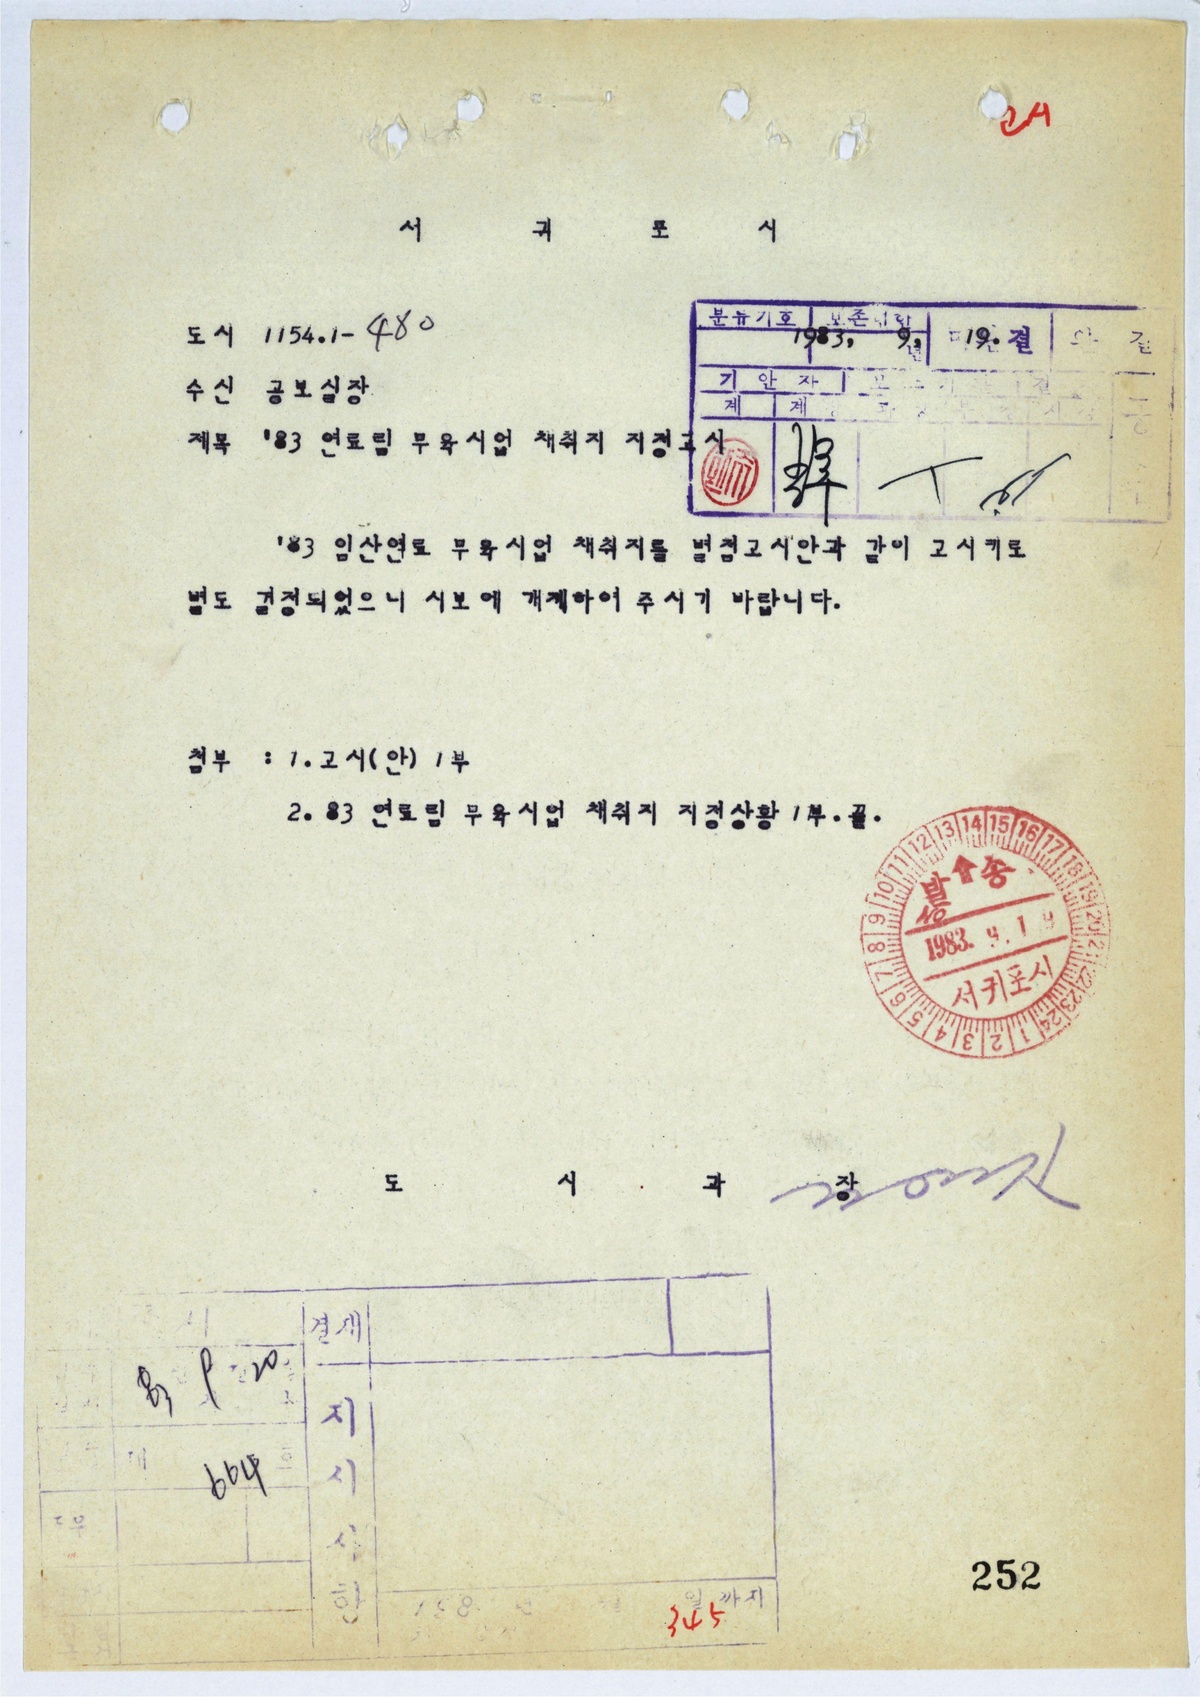 고시
서 귀 포 시
도시 1154.1-480
1983. 9. 19.
분류기호 보존기한
기안자
계 계
수신 공보실장
제목 '83 연료림 무육사업 채취지 지정고시
'83 임산연료 무육사업 채취지를 별첨고시안과 같이 고시키로
별도 결정되었으니 시보에 개제하여 주시기 바랍니다.
첨부 : 1. 고시(안) 1부
2. 83 연료림 무육사업 채취지 지정상황 1부. 끝.
1 2 3 4 5 6 7 8 9 10 11 12 13 14 15 16 17 18 19 20 21 22 23 24
발송
1983. 9. 19
서귀포시
도 시 과 장
결재
83 9 20
제 664 호
지시사항
일까지
345
252